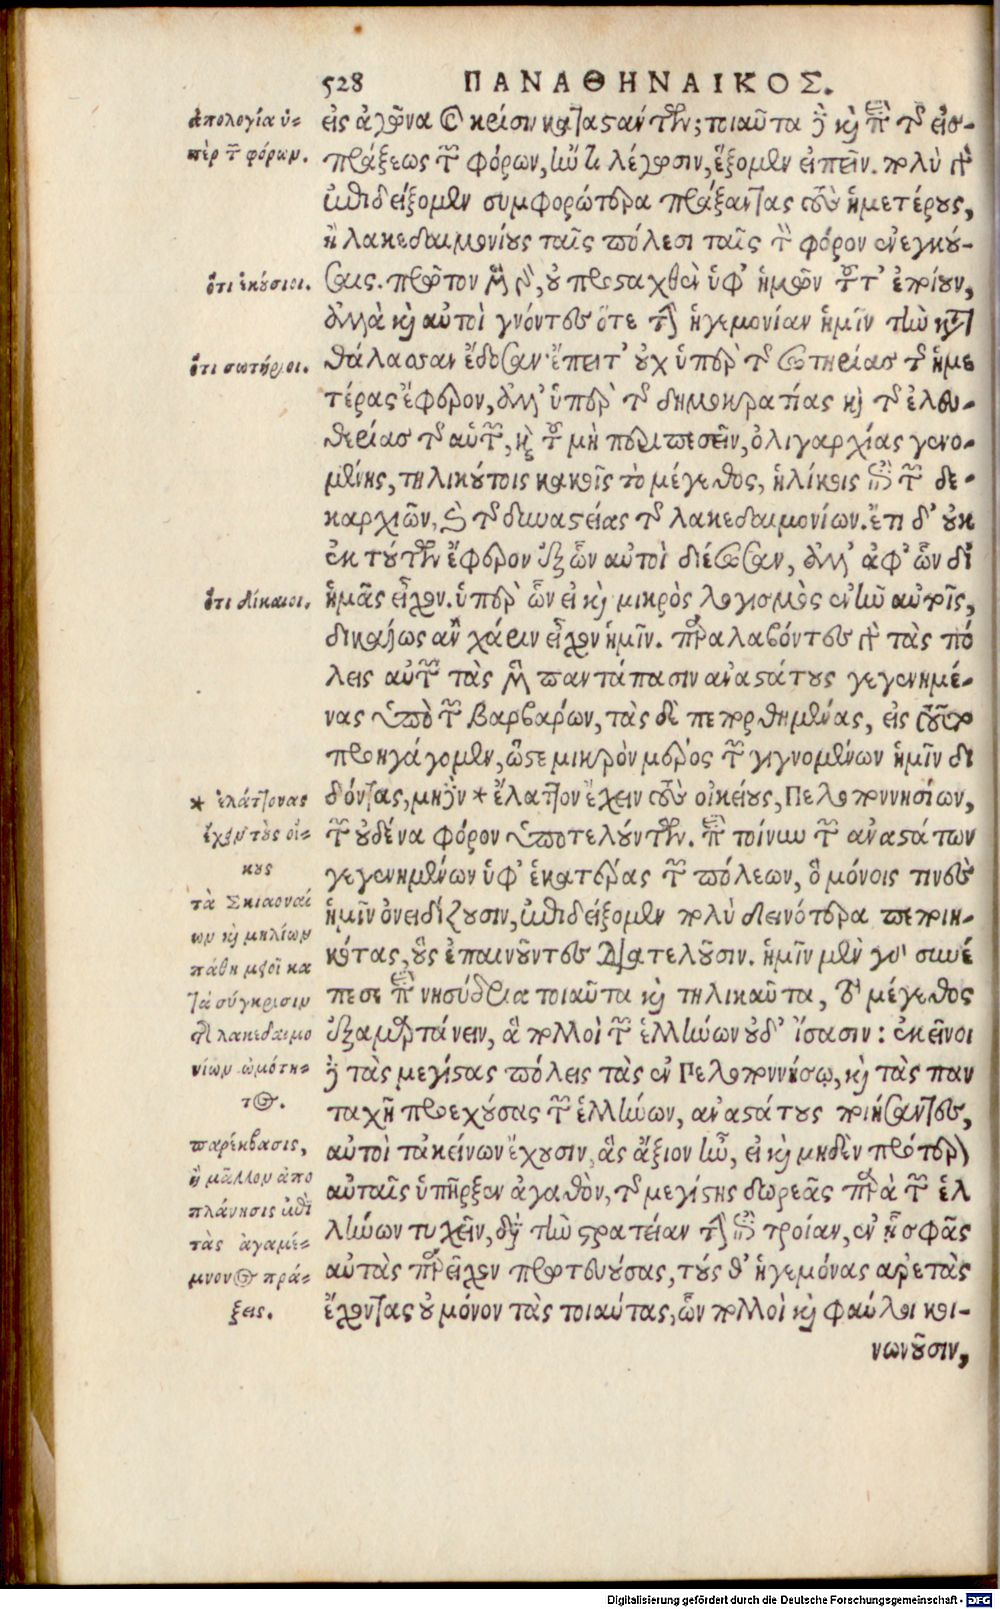 528 ΠΑΝΑΘΗΝΑΙΚΟΣ.
εἰς ἀγῶνα καὶ κρίσιν καταστάντων; τοιαῦτα δὲ καὶ περὶ τῆς εἰσ-
πράξεως τῶν φόρων, ἤν τι λέγωσιν, ἕξομεν εἰπεῖν. πολὺ γὰρ
ἐπιδείξομεν συμφορώτερα πράξαντας τοὺς ἡμετέρους,
ἢ λακεδαιμονίους ταῖς πόλεσι ταῖς τὸν φόρον ἐνεγκού-
σαις. πρῶτον μὲν γὰρ, οὐ προσταχθὲν ὑφ' ἡμῶν τοῦτ' ἐποίουν,
ἀλλὰ καὶ αὐτοὶ γνόντες ὅτε τὴν ἡγεμονίαν ἡμῖν τὴν κατὰ
θάλασσαν ἔδοσαν· ἔπειτ' οὐχ ὑπὲρ τῆς σωτηρίας τῆς ἡμε
τέρας ἔφερον, ἀλλ' ὑπὲρ τῆς δημοκρατίας καὶ τῆς ἐλευ-
θερίας τῆς αὑτῶν, καὶ τοῦ μὴ περιπεσεῖν, ὀλιγαρχίας γενο-
μένης, τηλικούτοις κακοῖς τὸ μέγεθος, ἡλίκοις ἐπὶ τῶν δε-
καρχιῶν, καὶ τῆς δυναστείας τῆς λακεδαιμονίων. ἔτι δ' οὐκ
ἐκ τούτων ἔφερον ἐξ ὧν αὐτοὶ διέσωσαν, ἀλλ' ἀφ' ὧν δι'
ἡμᾶς εἶχον. ὑπὲρ ὧν εἰ καὶ μικρὸς λογισμὸς ἐνῆν αὐτοῖς,
δικαίως ἂν χάριν εἶχον ἡμῖν. παραλαβόντες γὰρ τὰς πό
λεις αὐτῶν τὰς μὲν παντάπασιν ἀναστάτους γεγενημέ-
νας ὑπὸ τῶν βαρβάρων, τὰς δὲ πεπορθημένας, εἰς τοῦτο
προηγάγομεν, ὥστε μικρὸν μέρος τῶν γιγνομένων ἡμῖν δι
δόντας, μηδὲν * ἔλαττον ἔχειν τοὺς οἰκείους, Πελοποννησίων,
τῶν οὐδένα φόρον ὑποτελούντων. περὶ τοίνυν τῶν ἀναστάτων
γεγενημένων ὑφ' ἑκατέρας τῶν πόλεων, ὃ μόνοις τινὲς
ἡμῖν ὀνειδίζουσιν, ἐπιδείξομεν πολὺ δεινότερα πεποιη-
κότας, οὓς ἐπαινοῦντες διατελοῦσιν. ἡμῖν μὲν γὰρ συνέ
πεσε περὶ νησύδρια τοιαῦτα καὶ τηλικαῦτα, τὸ μέγεθος
ἐξαμαρτάνειν, ἃ πολλοὶ τῶν ἑλλήνων οὐδ' ἴσασιν: ἐκεῖνοι
δὲ τὰς μεγίστας πόλεις τὰς ἐν Πελοποννήσῳ, καὶ τὰς παν
ταχῇ προεχούσας τῶν ἑλλήνων, ἀναστάτους ποιήσαντες,
αὐτοὶ τἀκείνων ἔχουσιν, ἃς ἄξιον ἦν, εἰ καὶ μηδὲν πρότερον
αὐταῖς ὑπῆρξεν ἀγαθὸν, τῆς μεγίστης δωρεᾶς παρὰ τῶν ἑλ
λήνων τυχεῖν, διὰ τὴν στρατείαν τὴν ἐπὶ τροίαν, ἐν ᾗ σφᾶς
αὐτὰς παρεῖχον πρωτευούσας, τούς θ' ἡγεμόνας ἀρετὰς
ἔχοντας οὐ μόνον τὰς τοιαύτας, ὧν πολλοὶ καὶ φαύλοι κοι-
νωνοῦσιν,
ἀπολογία ὑ-
πὲρ τῶν φόρων.
ὅτι ἑκούσιοι.
ὅτι σωτήριοι.
ὅτι δίκαιοι.
* ἐλάττονας
ἔχειν τοὺς οἴ-
κους
τὰ Σκιωναί
ων καὶ μηλίων
πάθη
κα
τὰ σύγκρισιν
τῆς λακεδαιμο
νίων ὠμότη-
τος.
παρέκβασις,
ἢ μᾶλλον ἀπο
πλάνησις ἐπὶ
τὰς ἀγαμέ-
μνονος πρά-
ξεις.
Digitalisierung gefördert durch die Deutsche Forschungsgemeinschaft - DFG